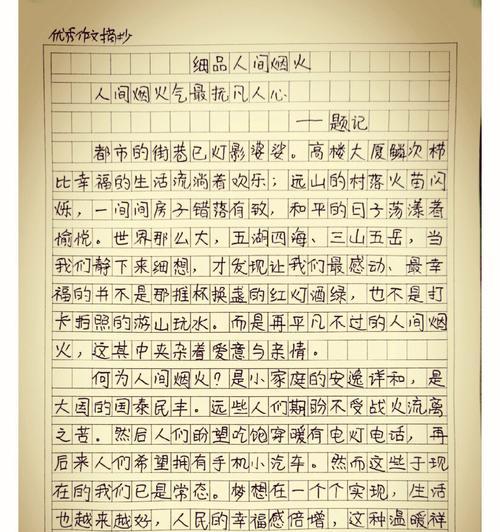 优秀作文摘抄
细品人间烟火
人间烟火气最抚凡人心
——题记
都市的街巷已灯影婆娑。高楼大厦鳞次栉
比幸福的生活流淌着欢乐；远山的村落火苗闪
烁，一间间房子错落有致，和平的日子荡漾着
愉悦。世界那么大，五湖四海、三山五岳，当
我们静下来细想，才发现让我们最感动、最幸
福的书不是那推杯换盏的红灯酒绿，也不是打
卡拍照的游山玩水。而是再平凡不过的人间烟
火，这其中夹杂着爱意与亲情。
何为人间烟火？是小家庭的安逸详和，是
大国的国泰民丰。远些人们期盼不受战火流离
之苦。然后人们盼望吃饱穿暖有电灯电话，再
后来人们希望拥有手机小汽车。然而这些于现
在的我们已是常态。梦想在一个个实现，生活
也越来越好，人民的幸福感倍增，这种温暖祥